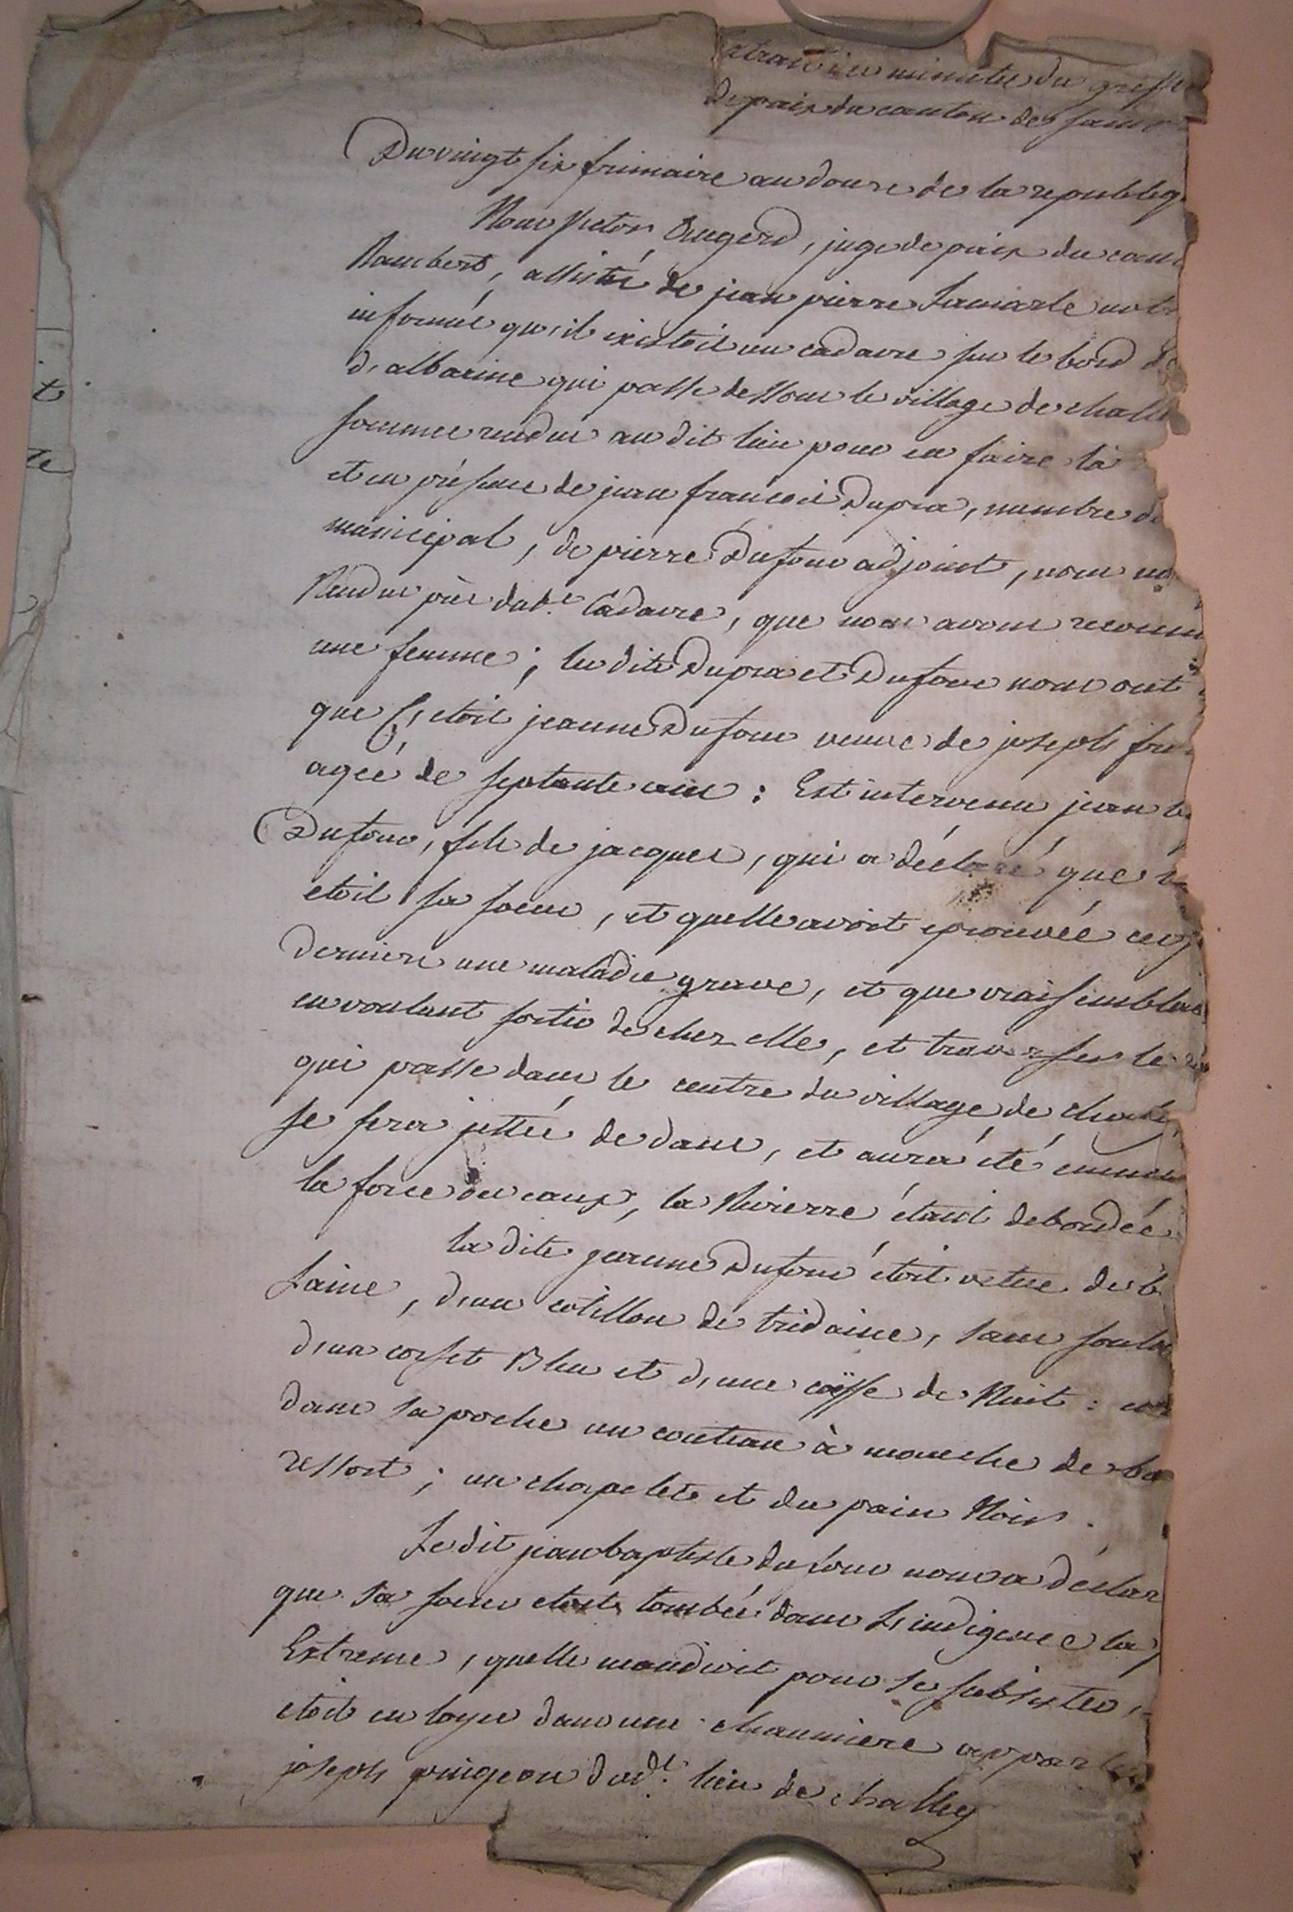 extrait des minutes du greffe
de paix du canton de saint
Du vingt six frimaire an douze de la republiq
Nous victor Augerd, juge de paix du cant
Rambert, assisté de jean pierre Lamarle
informé qu'il existoit un cadavre sur le bord de
d'albarine qui passe dessous le village de challe
sommes rendus au dit lieu pour en faire la
et en présence de jean francois Dupra, membre du
municipal, de pierre Dufour adjoint, nous
Rendus près dud.t Cadavre, que nous avons reconnu
une femme; les dits Dupra et Dufour nous ont
que C'etoit jeanne Dufour veuve de joseph
agée de septante ans : Est intervenu jean b
Dufour, fils de jacques, qui a déclaré que
etoit sa soeur, et quelle avoit eprouvée ces j
derniers une maladie grave, et que vraisemblab
en voulant sortir de chez elle, et traverser le
qui passe dans le centre du village de challey,
se sera jettée dedans, et aura été emmen
la force des eaux, la Rivierre étant debordée
la dite jeanne Dufour étoit vetue de b
Laine, d'un cotillon de tridaine, sans soulie
d'un corset Bleu et d'une coïffe de Nuit :
dans sa poche un couteau à mouche de
ressort ; un chapelet et du pain Noir.
Le dit jean baptiste dufour nous a déclar
que sa soeur etoit tombée dans L'indigence la
Extreme, quelle mendioit pour se subsister,
etoit en loyer dans une chaumiere appart
joseph pingeon dud.t lieu de challey
ti
te